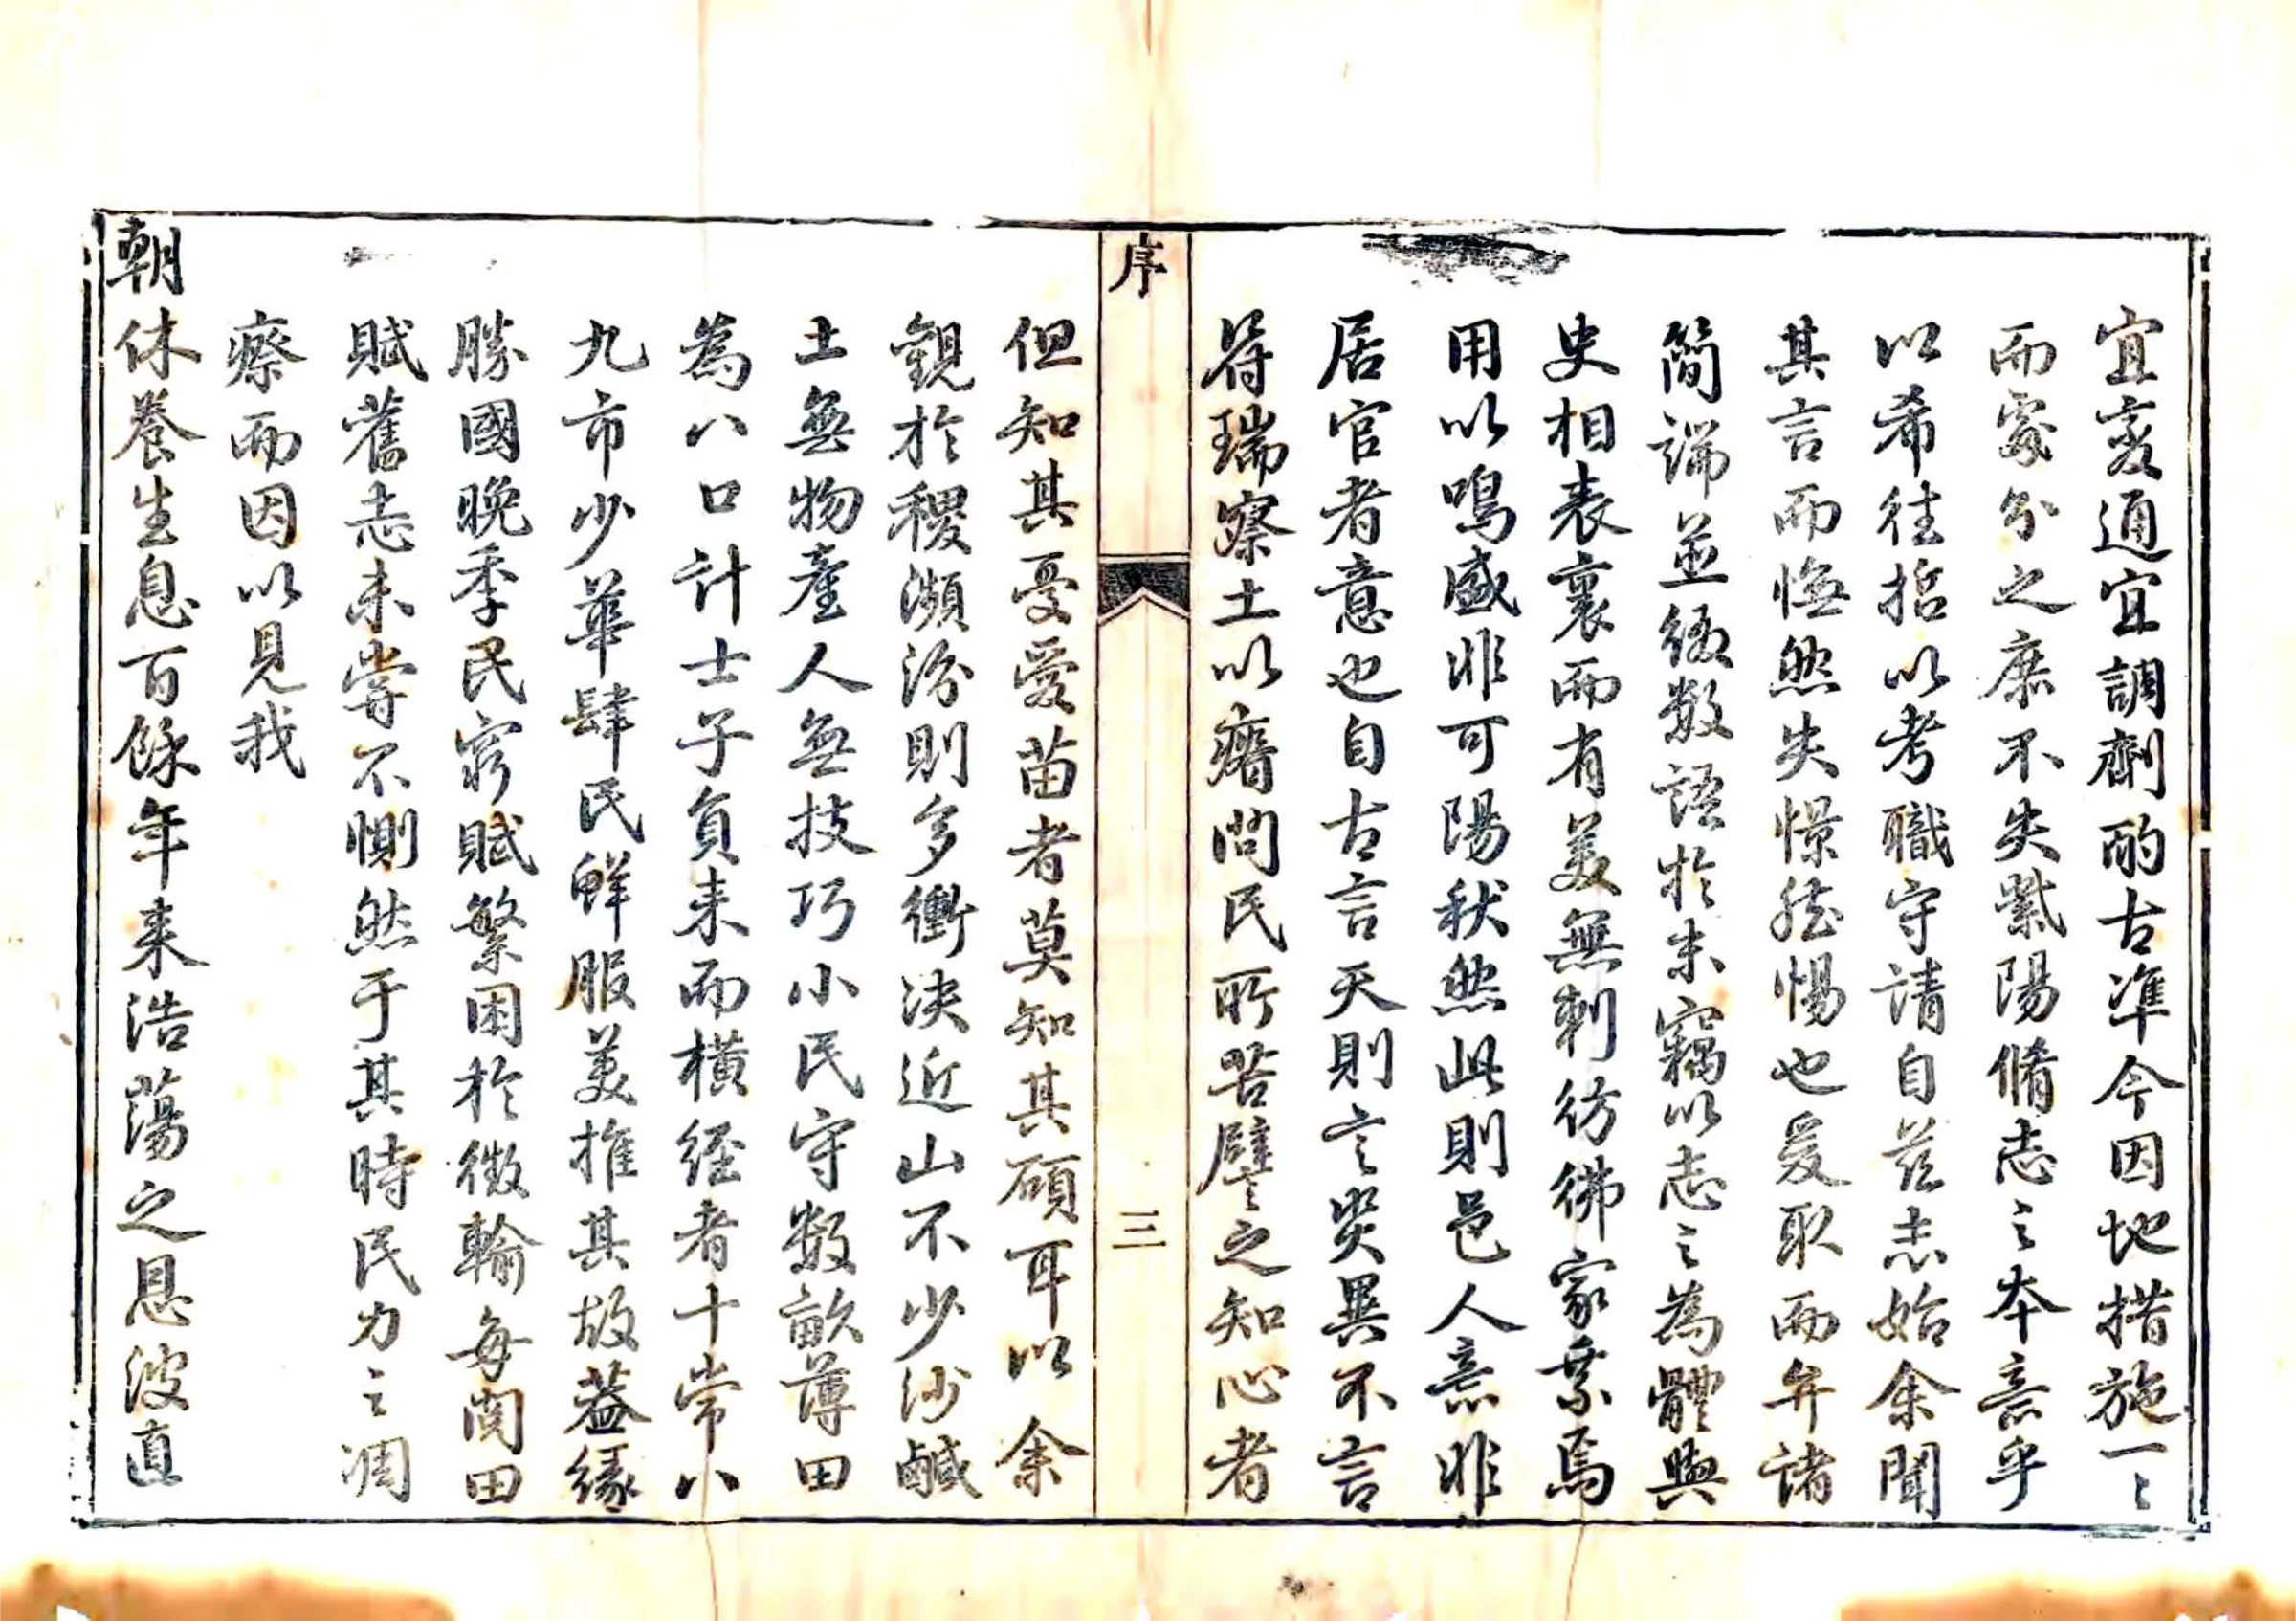 宜变通宜調劑酌古準今因地措施一〻
而處分之庶不失紫陽脩志之本意乎
以希往哲以考職守請自茲志始余聞
其言而憮然失憬然惕也爰取而弁諸
簡端並綴数語於末竊以志之為體與
史相表裏而有美無刺彷彿家乗焉
用以鳴盛非可陽秋然此則邑人意非
居官者意也自古言天則言災異不言
符瑞察土以瘠問民所苦譬之知心者
序
三
但知其憂愛苗者莫知其碩耳以余
觀於稷瀕汾則多衝決近山不少沙鹹
土無物產人無技巧小民守数畝薄田
為八口計士子負耒而横経者十常八
九市少華肆民鮮服美推其故蓋緣
勝國晚季民窮賦繁困於徴輸每閱田
賦舊志未嘗不惻然于其時民力之凋
瘵而因以見我
朝休養生息百餘年来浩蕩之恩波直